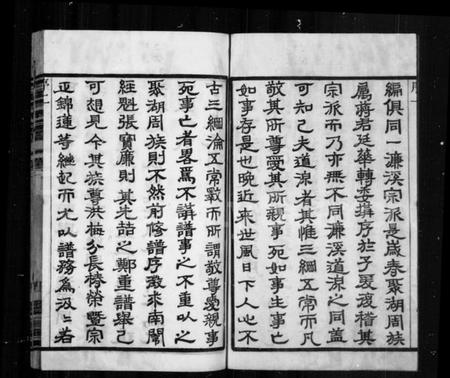 編俱同一濂溪宗派是歲春聚湖周族
屬蔣君廷華轉委撰序於予爰復稽其
宗派而乃亦無不同濂溪道源之同蓋
可知已夫道源者其惟三綱五常而凡
敬其所尊愛其所親事死如事生事亡
如事存是也晚近來世風日下人心不
古三綱淪五常斁而所謂敬尊愛親事
死事亡者畧焉不講譜事之不重以之
聚湖周族則不然前修譜序敢來南閣
經魁張寶廉則其先喆之鄭重譜舉已
可想見今其族尊洪梅分長椿榮暨宗
正錦道等繼起而尤以譜務為汲汲若
序一
序二